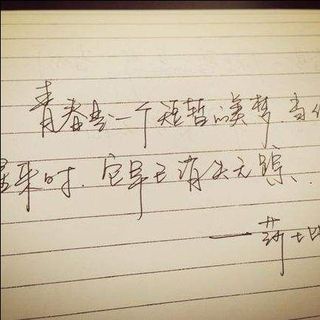 青春是一个短暂的美梦,当你
醒来时,它早已消失无踪
——莎士比